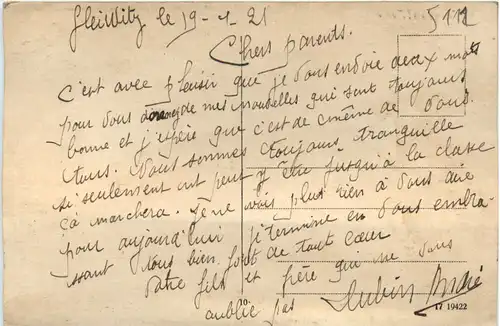 Gleiwitz le 19-1-21
5112
Chers parents.
C'est avec plaisir que je vous envoie deux mots
pour vous donnez de mes nouvelles qui sont toujours
bonne et j'espère que c'est de même de vous.
tous. Nous sommes toujours tranquille
si seulement ont peut y être jusqu'à la classe
çà marchera. Je ne vois plus rien à vous dire
pour aujourd'hui je termine en vous embra-
ssant tous bien fort de tout cœur
Votre fils et frère qui ne vous
oublie pas Aubin André
20.
17 19422